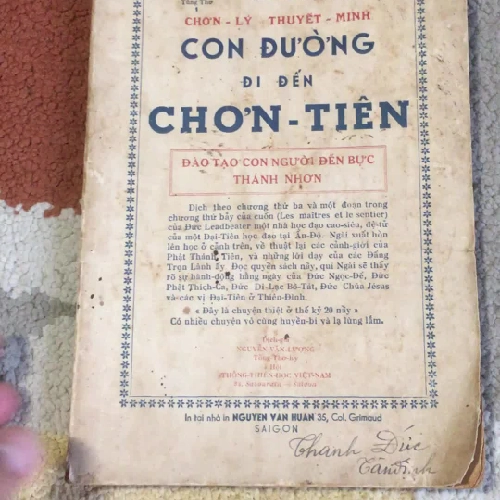 Tổng Thơ
CHƠN - LÝ THUYẾT - MINH
CON ĐƯỜNG
ĐI ĐẾN
CHƠN - TIÊN
ĐÀO TẠO CON NGƯỜI ĐẾN BỰC
THÁNH NHƠN
Dịch theo chương thứ ba và một đoạn trong
chương thứ bảy của cuốn (Les maîtres et le sentier)
của Đức Leadbeater một nhà học đạo cao-siêu, đệ-tử
của một Đại-Tiên học đạo tại Ấn-Độ. Ngài xuất hồn
lên học ở cảnh trên, về thuật lại các cảnh-giới của
Phật Thánh Tiên, và những lời dạy của các Đấng
Trọn Lành ấy. Đọc quyển sách này, quí Ngài sẽ thấy
rõ sự hành-động hằng ngày của Đức Ngọc-Đế, Đức
Phật Thích-Ca, Đức Di-Lạc Bồ-Tát, Đức Chúa Jésus
và các vị Đại-Tiên ở Thiên-Đình.
« Đây là chuyện thiệt ở thế kỷ 20 này »
Có nhiều chuyện vô cùng huyền-bí và lạ lùng lắm.
NGUYỄN VĂN LƯỢNG
Tổng Thơ-ký
THÔNG-THIÊN-HỌC VIỆT-NAM
In tại nhà in NGUYEN VAN HUAN 35, Col. Grimaud
SAIGON
Thanh Đức